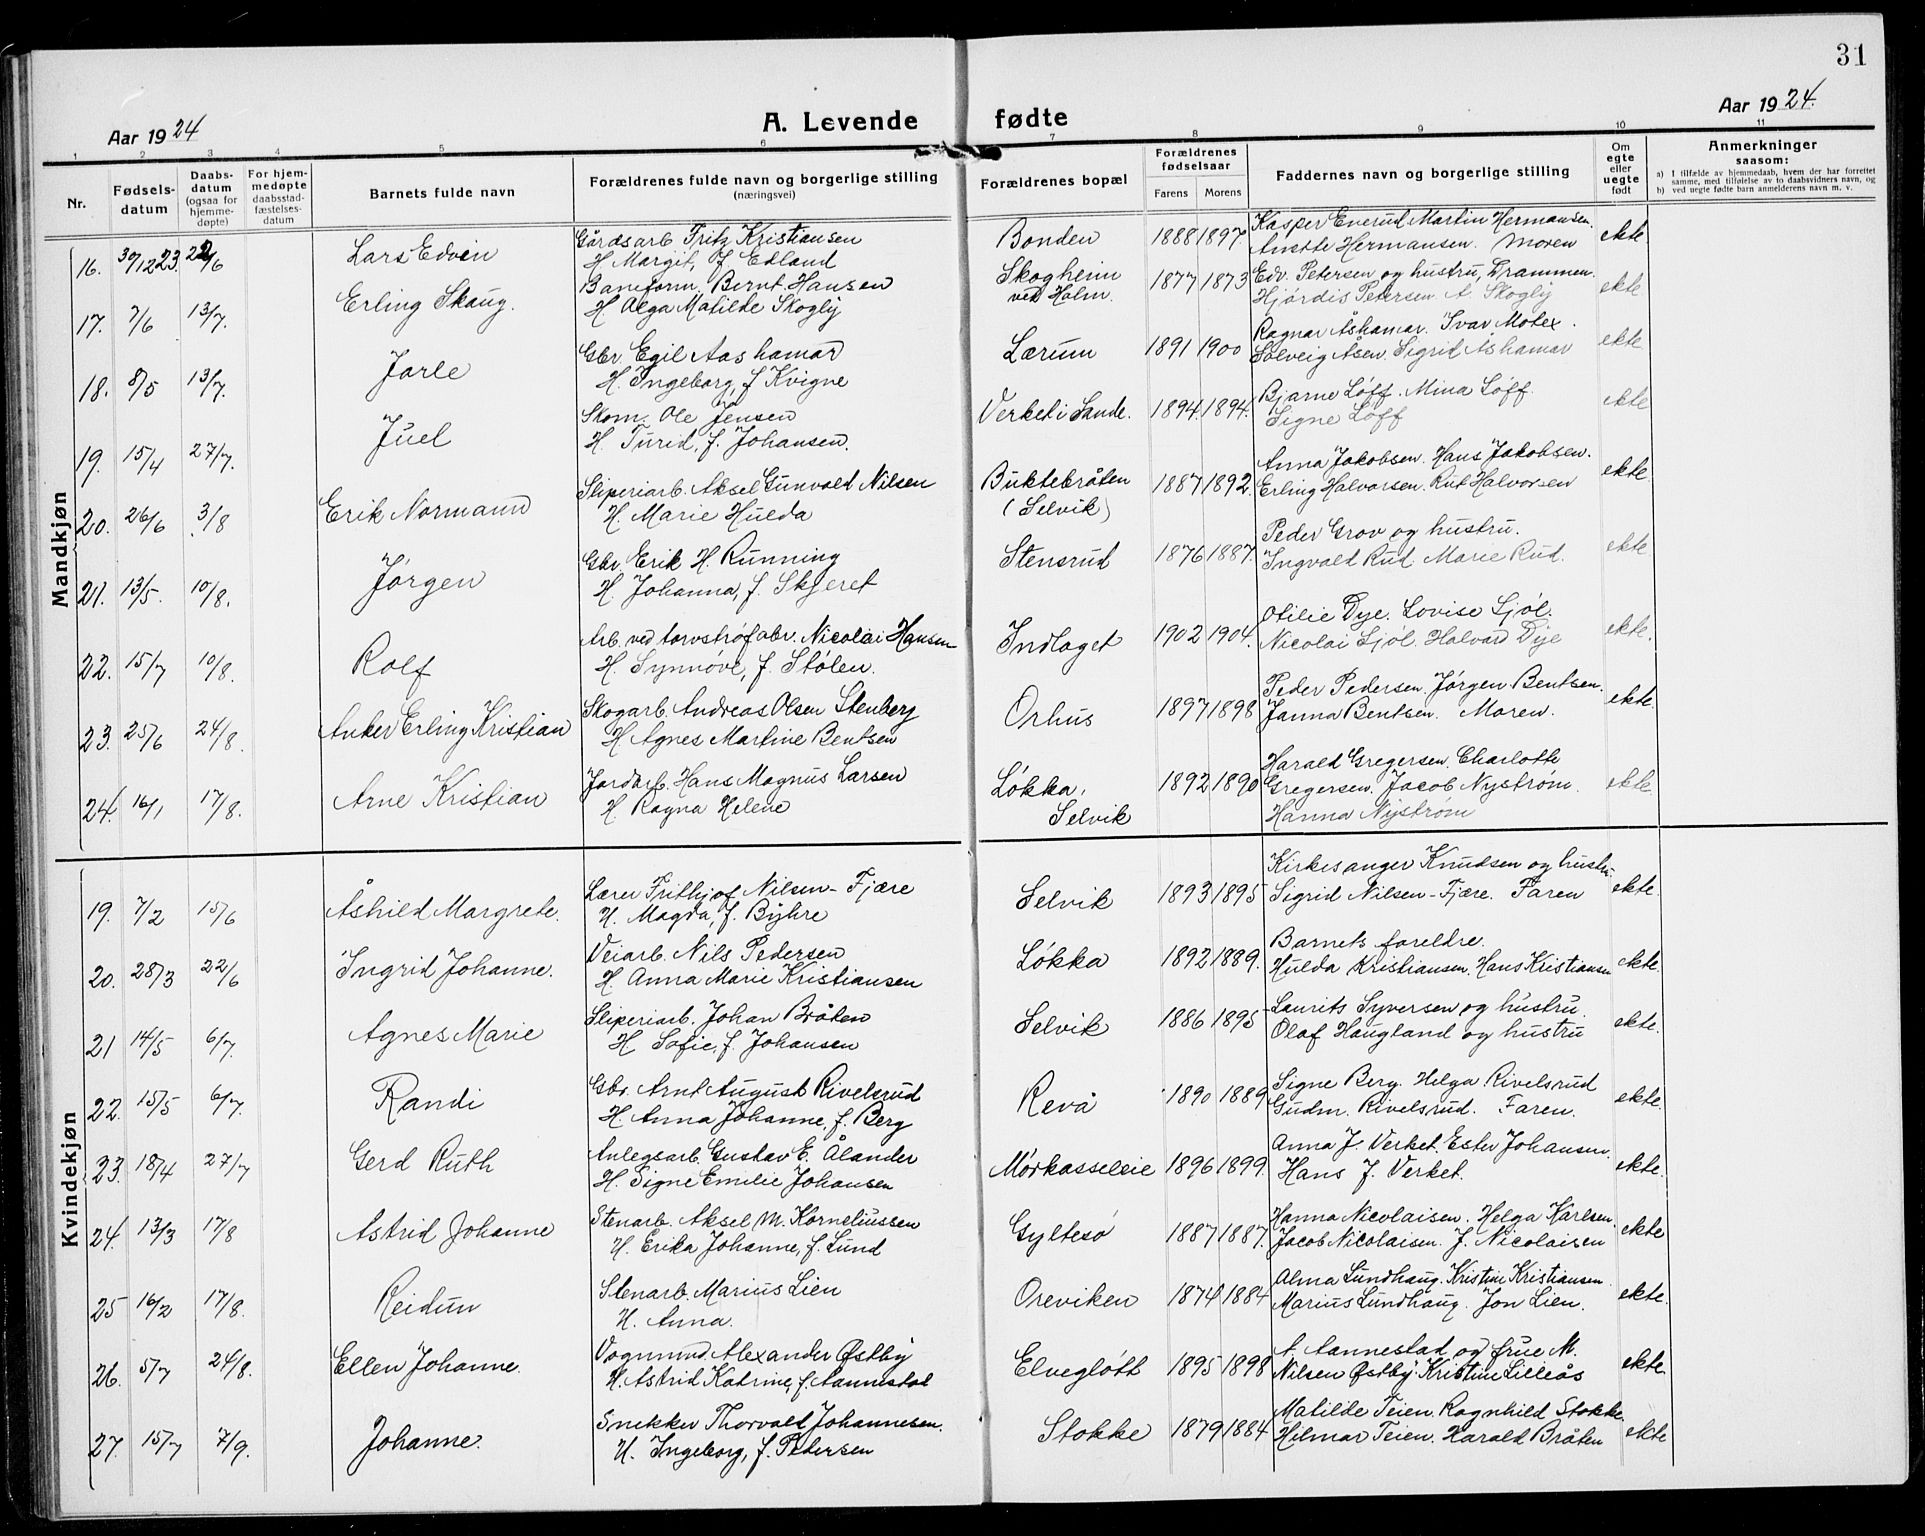 31
Aar 1924
A. Levende fødte
Aar 1924.
1 2 3 4 5 6 7 8 9 10 11
Nr.
Fødsels-
datum
Daabs-
datum
(ogsaa for
hjemme-
døpte)
For hjem-
medøpte
daabsstad-
fæstelses-
datum
Barnets fulde navn
Forældrenes fulde navn og borgerlige stilling
(næringsvei)
Forældrenes bopæl
Forældrenes
fødselsaar
Farens Morens
Faddernes navn og borgerlige stilling
Om
egte
eller
uegte
født
Anmerkninger
saasom:
a) I tilfælde av hjemmedaab, hvem der har forrettet
samme, med tilføielse av to daabsvidners navn, og
b) ved uegte fødte barn anmelderens navn m. v.
Mandkjøn
16. 30/12 23. 22/6 Lars Edvin Gårdsarb. Fritz Kristiansen
H. Margit, f. Edland
Bonden 1888 1897 Kasper Enerud. Martin Hermansen.
Anette Hermansen. Moren ekte
17. 7/6 13/7. Erling Skaug. Baneform. Bernt Hansen
H. Olga Matilde Skogly
Skogheim
ved Holm. 1877 1873 Edv. Petersen og hustru, Drammen.
Hjørdis Petersen. A. Skogly ekte
18. 8/5 13/7. Jarle Gbr. Egil Aashamar
H. Ingeborg, f. Kvigne
Lærum 1891 1900 Ragnar Åshamar. Ivar Motex.
Solveig Åsen. Sigrid Åshamar ekte
19. 15/4 27/7. Juel Skom. Ole Jensen
H. Turid, f. Johansen.
Verket i Sande. 1894. 1894. Bjarne Løff. Mina Løff.
Signe Løff ekte
20. 26/6 3/8 Erik Normann Sliperiarb. Aksel Gunvald Nilsen
H. Marie Hulda
Buktebråten
(Selvik) 1887 1892. Anna Jakobsen. Hans Jakobsen.
Erling Halvorsen. Rut Halvorsen ekte
21. 13/5. 10/8. Jørgen Gbr. Erik H. Running
H. Johanna, f. Skjeret
Stensrud 1876 1887. Peder Grov og hustru.
Ingvald Rud. Marie Rud. ekte
22. 15/7 10/8. Rolf Arb. ved torvstrøfabr. Nicolai Hansen
H. Synnøve, f. Stølen.
Indlaget 1902 1904. Otilie Dye. Lovise Sjøl.
Nicolai Sjøl. Halvard Dye ekte.
23. 25/6 24/8. Anker Erling Kristian Skogarb. Andreas Olsen Stenberg
H. Agnes Martine Bentsen
Orhus 1897 1898 Peder Pedersen. Jørgen Bentsen.
Janna Bentsen. Moren. ekte.
24. 16/1 17/8. Arne Kristian Jordarb. Hans Magnus Larsen
H. Ragna Helene
Løkka,
Selvik 1892 1890 Harald Gregersen. Charlotte
Gregersen. Jacob Nystrøm.
Hanna Nystrøm ekte.
Kvindekjøn
19. 7/2 15/6 Åshild Margrete. Lærer Frithjof Nilsen-Fjære
H. Magda, f. Byhre
Selvik 1893 1895 Kirkesanger Knudsen og hustr.
Sigrid Nilsen-Fjære. Faren ekte.
20. 28/3 22/6 Ingrid Johanne. Veiarb. Nils Pedersen
H. Anna Marie Kristiansen
Løkka 1892 1889. Barnets foreldre.
Hulda Kristiansen. Hans Kristiansen ekte.
21 14/5 6/7. Agnes Marie Sliperiarb. Johan Bråten
H. Sofie, f. Johansen
Selvik 1886 1895 Laurits Syversen og hustru.
Olaf Haugland og hustru ekte.
22. 15/5 6/7. Randi Gbr. Arnt August Rivelsrud
H. Anna Johanne, f. Berg
Revå 1890 1889 Signe Berg. Helga Rivelsrud
Gudm. Rivelsrud. Faren. ekte.
23. 18/4 27/7 Gerd Ruth Anlegsarb. Gustav E. Ålander
H. Signe Emilie Johansen
Mørkasseleie 1896 1899. Anna J. Verket. Ester Johansen.
Hans J. Verket. ekte.
24. 13/3 17/8 Astrid Johanne Stenarb. Aksel M. Korneliussen
H. Erika Johanne, f. Lund
Gyltesø 1887 1887. Hanna Nicolaisen. Helga Karlsen.
Jacob Nicolaisen. J. Nicolaisen ekte
25 16/2 17/8. Reidun Stenarb. Marius Lien
H. Anna.
Oreviken 1874 1884 Alma Lundhaug. Kristine Kristiansen.
Marius Lundhaug. Jon Lien. ekte.
26. 5/7 24/8. Ellen Johanne. Vognmand. Alexander Østby
H. Astrid Katrine, f. Aannestad
Elvegløtt 1895 1898 A. Aannestad og frue M.
Nilsen Østby. Kristine Lilleås ekte.
27. 15/7 7/9. Johanne. Snekker Thorvald Johannesen.
H. Ingeborg, f. Pedersen
Stokke 1879 1884 Matilde Teien. Ragnhild Stokke
Hilmar Teien. Harald Bråten ekte